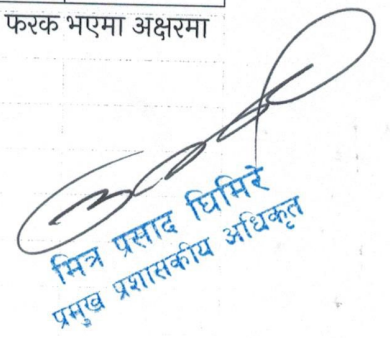 फरक भएमा अक्षरमा
मित्र प्रसाद घिमिरे
प्रमुख प्रशासकीय अधिकृत